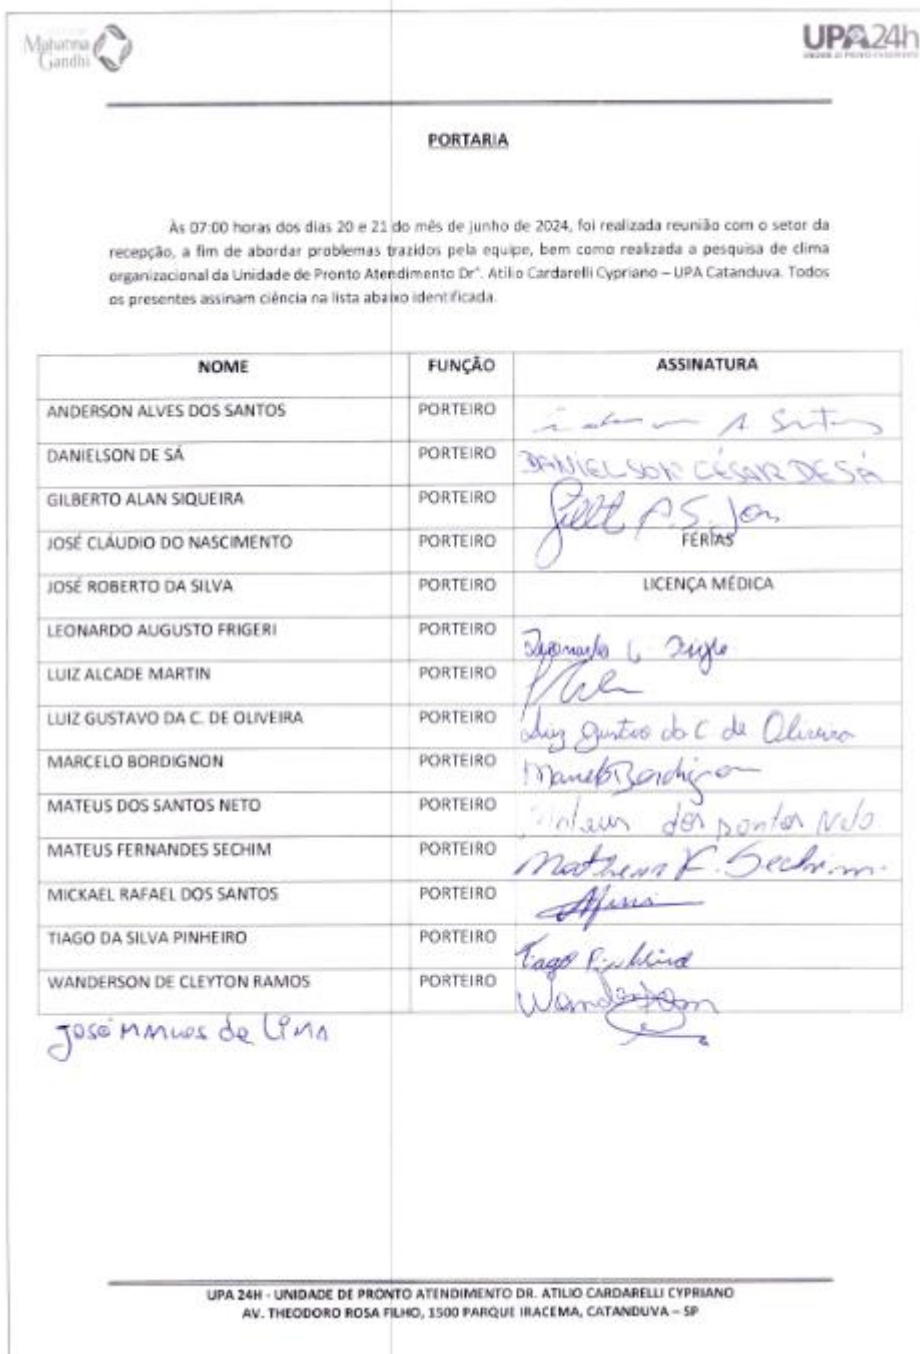 Mahatma
Gandhi
UPA24h
PORTARIA
Às 07:00 horas dos dias 20 e 21 do mês de junho de 2024, foi realizada reunião com o setor da
recepção, a fim de abordar problemas trazidos pela equipe, bem como realizada a pesquisa de clima
organizacional da Unidade de Pronto Atendimento Dr°. Atilio Cardarelli Cypriano – UPA Catanduva. Todos
os presentes assinam ciência na lista abaixo identificada.
NOME FUNÇÃO ASSINATURA
ANDERSON ALVES DOS SANTOS PORTEIRO
DANIELSON DE SÁ PORTEIRO DANIELSON CÉSAR DE SÁ
GILBERTO ALAN SIQUEIRA PORTEIRO
JOSÉ CLÁUDIO DO NASCIMENTO PORTEIRO FÉRIAS
JOSÉ ROBERTO DA SILVA PORTEIRO LICENÇA MÉDICA
LEONARDO AUGUSTO FRIGERI PORTEIRO
LUIZ ALCADE MARTIN PORTEIRO
LUIZ GUSTAVO DA C. DE OLIVEIRA PORTEIRO Luiz Gustavo da C de Oliveira
MARCELO BORDIGNON PORTEIRO Marcelo Bordignon
MATEUS DOS SANTOS NETO PORTEIRO dos santos Neto
MATEUS FERNANDES SECHIM PORTEIRO Matheus F. Sechim
MICKAEL RAFAEL DOS SANTOS PORTEIRO
TIAGO DA SILVA PINHEIRO PORTEIRO Tiago Pinheiro
WANDERSON DE CLEYTON RAMOS PORTEIRO
José Marcos de Lima
UPA 24H - UNIDADE DE PRONTO ATENDIMENTO DR. ATILIO CARDARELLI CYPRIANO
AV. THEODORO ROSA FILHO, 1500 PARQUE IRACEMA, CATANDUVA – SP